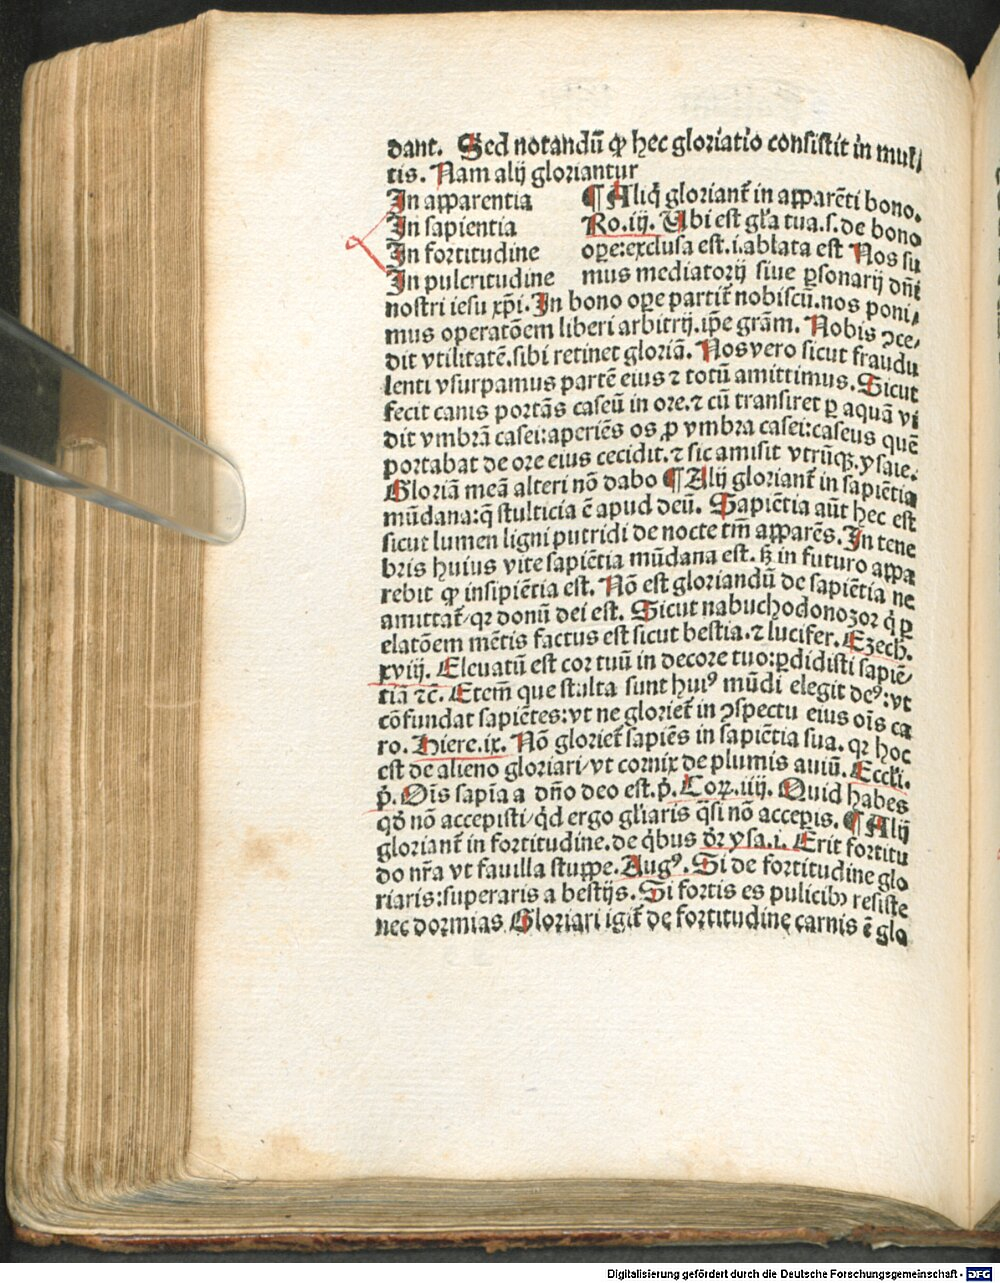 dant. Sed notandū ꝙ hec gloriatio consistit in mul/
tis. Nam alij gloriantur
In apparentia
In sapientia
In fortitudine
In pulcritudine
¶ Aliq̄ gloriant̄ in apparēti bono.
Ro.iij. Ubi est gl̄a tua.s.de bono
oꝑe:exclusa est.i.ablata est Nos su
mus mediatorij siue ꝑsonarij dn̄i
nostri iesu xp̄i. In bono oꝑe partit̄ nobiscū.nos poni/
mus operatōem liberi arbitrij.ip̄e grām. Nobis ↄce/
dit vtilitatē.sibi retinet gloriā. Nos vero sicut fraudu
lenti vsurpamus partē eius ⁊ totū amittimus. Sicut
fecit canis portās caseū in ore.⁊ cū transiret ꝑ aquā vi
dit vmbrā casei:aperiēs os ꝓ vmbra casei:caseus quē
portabat de ore eius cecidit.⁊ sic amisit vtrūqꝫ.ysaie.
Gloriā meā alteri nō dabo ¶ Alij gloriant̄ in sapiētia
mūdana:q̄ stulticia ē apud deū. Sapiētia aūt hec est
sicut lumen ligni putridi de nocte tm̄ apparēs. In tene
bris huius vite sapiētia mūdana est. sꝫ in futuro appa
rebit ꝙ insipiētia est. Nō est gloriandū de sapiētia ne
amittat̄/qꝛ donū dei est. Sicut nabuchodonozor q̇ ꝑ
elatōem mētis factus est sicut bestia.⁊ lucifer. Ezech.
xviij. Eleuatū est cor tuū in decore tuo:ꝑdidisti sapiē/
tiā ⁊c̄. Etem̄ que stulta sunt huiꝰ mūdi elegit deꝰ:vt
cōfundat sapiētes:vt ne gloriet̄ in ↄspectu eius oīs ca
ro. Hiere.ix. Nō gloriet̄ sapiēs in sapiētia sua. qꝛ hoc
est de alieno gloriari/vt cornix de plumis auiū. Eccl̄i.
p̄. Oīs sapīa a dn̄o deo est.p̄. Coꝝ.iiij. Quid habes
qd̄ nō accepisti/q̇d ergo gl̄iaris q̄si nō acceperis. ¶ Alij
gloriant̄ in fortitudine.de q̇bus dr̄ ysa.i. Erit fortitu
do nr̄a vt fauilla stuppe. Augꝰ. Si de fortitudine glo
riaris:superaris a bestijs. Si fortis es pulicibꝫ resiste
nec dormias Gloriari igit̄ de fortitudine carnis ē glo
Digitalisierung gefördert durch die Deutsche Forschungsgemeinschaft - DFG